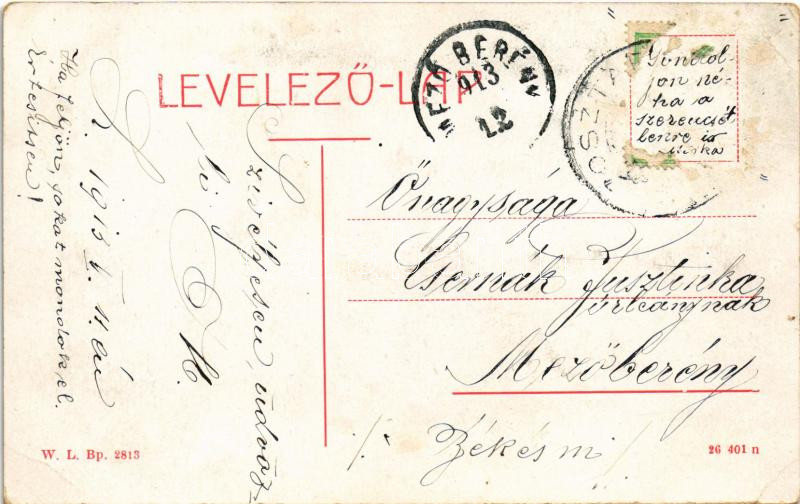 LEVELEZŐ-LAP
MEZŐ BERÉNY
913
12
Gondol-
jon né-
ha a
szerencsét
lenre is
Miska
Őnagysága
Csernák Jusztinka
úrleánynak
Mezőberény
/: Békés m :/
Szivélyesen üdvöz-
li
M.
1913 V. 11. én
Ha feljön, sokat mondok el.
Értesissen!
W. L. Bp. 2813
26 401 n